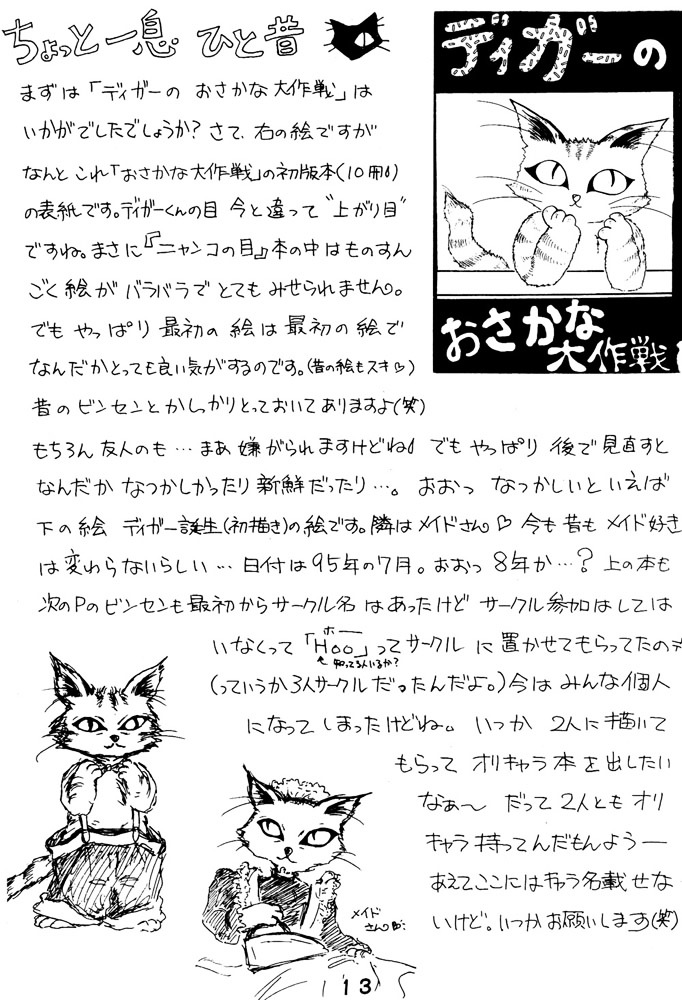 ちょっと一息 ひと昔
ディガーの
おさかな
大作戦
まずは「ディガーの おさかな大作戦」は
いかがでしたでしょうか？さて、右の絵ですが
なんと これ「おさかな大作戦」の初版本(10冊)
の表紙です。ディガーくんの目 今と違って"上がり目"
ですね。まさに『ニャンコの目』本の中はものすん
ごく絵が バラバラで とても みせられません。
でも やっぱり 最初の 絵は 最初の 絵で
なんだかとっても良い気がするのです。(昔の絵もスキ♡)
昔のビンセンとかしっかりとっておいてありますよ(笑)
もちろん 友人のも…まあ 嫌がられますけどね でも やっぱり 後で見直すと
なんだか なつかしかったり 新鮮だったり…。 おおっ なつかしいといえば
下の絵 ディガー誕生(初描き)の絵です。隣はメイドさん♡ 今も昔も メイド好き
は変わらないらしい … 日付は95年の7月。おおっ 8年か…？ 上の本も
次のPのビンセンも最初からサークル名 はあったけど サークル参加はしては
いなくって「Hoo」ってサークル に置かせてもらってたの
ホー
↑知ってる人いるか？
(っていうか3人サークルだったんだよ。)今は みんな個人
になって しまったけどね。 いつか 2人に描いて
もらって オリキャラ本を出したい
なぁ〜 だって 2人とも オリ
キャラ持ってんだもんようー
あえてここにはキャラ名載せな
いけど。いつかお願いします(笑)
メイド
さん
13